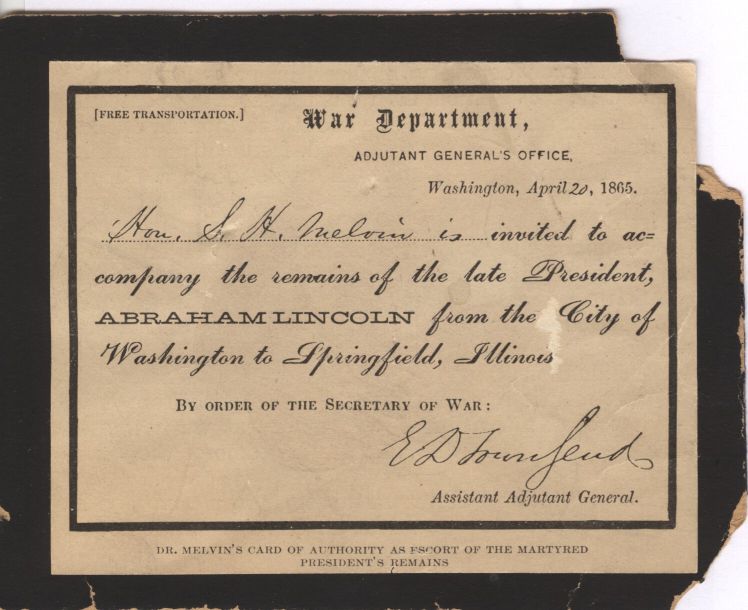 [FREE TRANSPORTATION.]
War Department,
ADJUTANT GENERAL'S OFFICE,
Washington, April 20, 1865.
Hon. S. H. Melvin is invited to ac=
company the remains of the late President,
ABRAHAM LINCOLN from the City of
Washington to Springfield, Illinois
BY ORDER OF THE SECRETARY OF WAR:
E D Townsend
Assistant Adjutant General.
DR. MELVIN'S CARD OF AUTHORITY AS ESCORT OF THE MARTYRED
PRESIDENT'S REMAINS